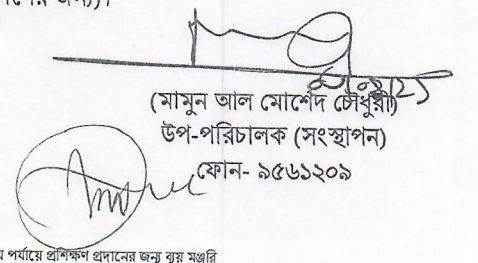 (মামুন আল মোর্শেদ চৌধুরী)
উপ-পরিচালক (সংস্থাপন)
ফোন- ৯৫৬১২০৯
পর্যায়ে প্রশিক্ষণ প্রদানের জন্য ব্যয় মঞ্জুরি